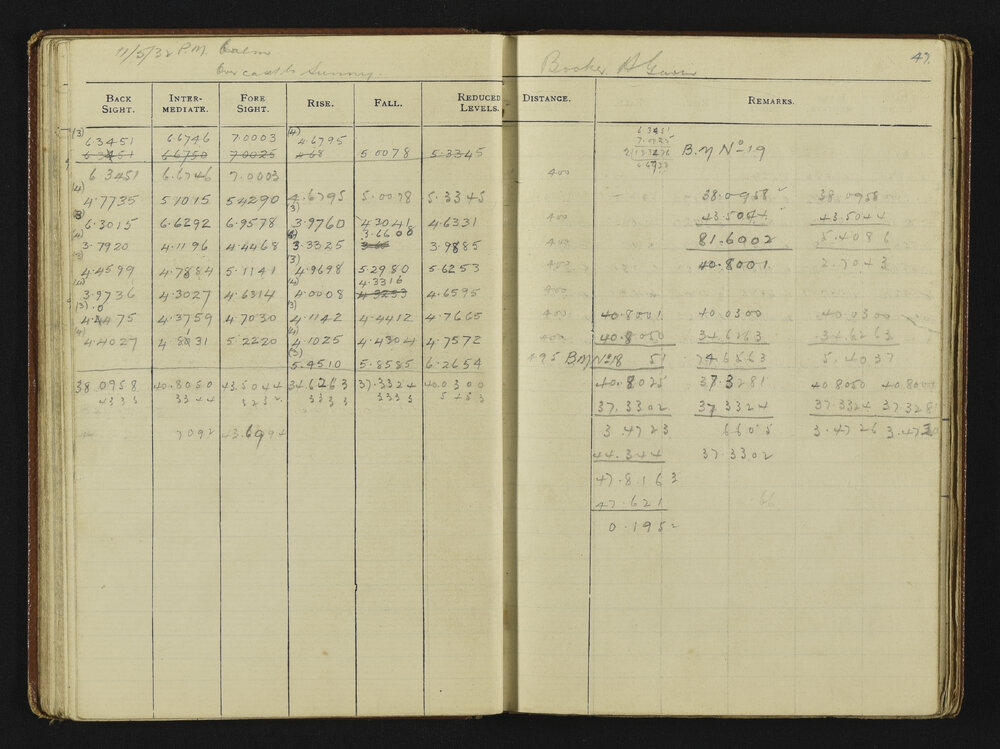 11/5/32 P.M. Calm
Overcast to Sunny
Booker
47.
BACK SIGHT. INTER-MEDIATE. FORE SIGHT. RISE. FALL. REDUCED LEVELS. DISTANCE. REMARKS.
(3) (4) 6.3451
6.3451 6.6746 7.0003 4.6795 7.0025
6.3451 6.6750 7.0025 4.68 5.0078 5.3345 2)13.3476 B.M No 19
6.3451 6.6746 7.0003 400
(4) 4.7735 5.1015 5.4290 4.6795 5.0078 5.3345 38.0958 38.0958
(3) 6.3015 6.6292 6.9578 (3) 3.9760 4.3041 4.6331 400 43.5044 43.5044
(4) 3.7920 4.1196 4.4468 3.3325 3.66 3.6608 3.9885 400 81.6002 5.4086
(3) 4.4599 4.7884 5.1141 (3) 4.9698 5.2980 5.6253 400 40.8001 2.7043
(4) 3.9736 4.3027 4.6314 (4) 4.0008 4.3253 4.3316 4.6595 400
(3) 4.4475 4.3759 4.7030 (3) 4.1142 4.4412 4.7665 400 40.8001 40.0300 40.0300
(4) 4.4027 4.8031 5.2220 (4) 4.1025 4.4304 4.7572 400 40.8050 34.6263 34.6263
(3) 5.4510 5.8585 6.2654 495 B.M No 18 51 74.6563 5.4037
38.0958 40.8050 43.5044 34.6263 37.3324 40.0300 40.8025 37.3281 40.8050 40.8001
4333 3344 3232 3333 3333 5453 37.3302 37.3324 37.3324 37.328
7092 43.6094 3.4723 6605 3.4726 3.4720
44.344 37.3302
47.8163
47.621
0.1952